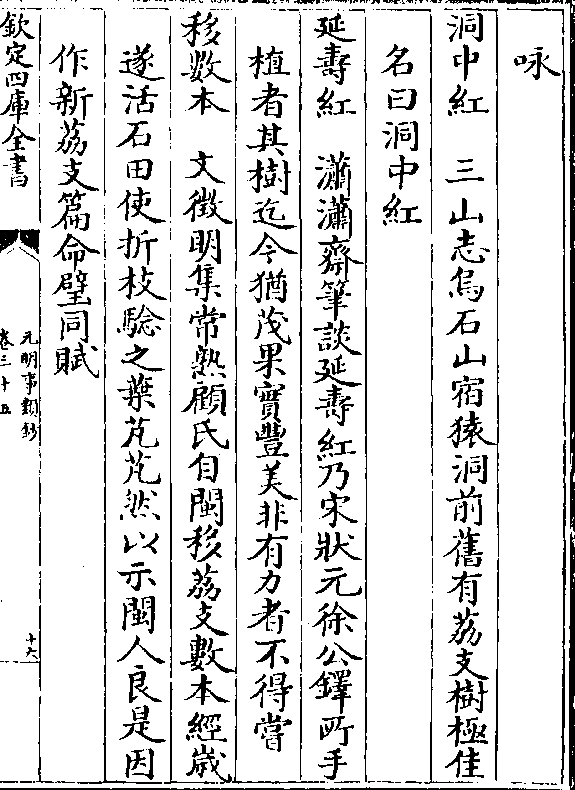 咏
洞中紅　三山志烏石山宿猿洞前舊有荔支樹極佳
名曰洞中紅
延壽紅　瀟瀟齋筆談延壽紅乃宋狀元徐公鐸所手
植者其樹迄今猶茂果實豐美非有力者不得嘗
移數本　文徵明集常熟顧氏自閩移荔支數本經歲
遂活石田使折枝驗之葉芃芃然以示閩人良是因
作新荔支篇命璧同賦
欽定四庫全書
元明事類鈔
卷三十五
十六